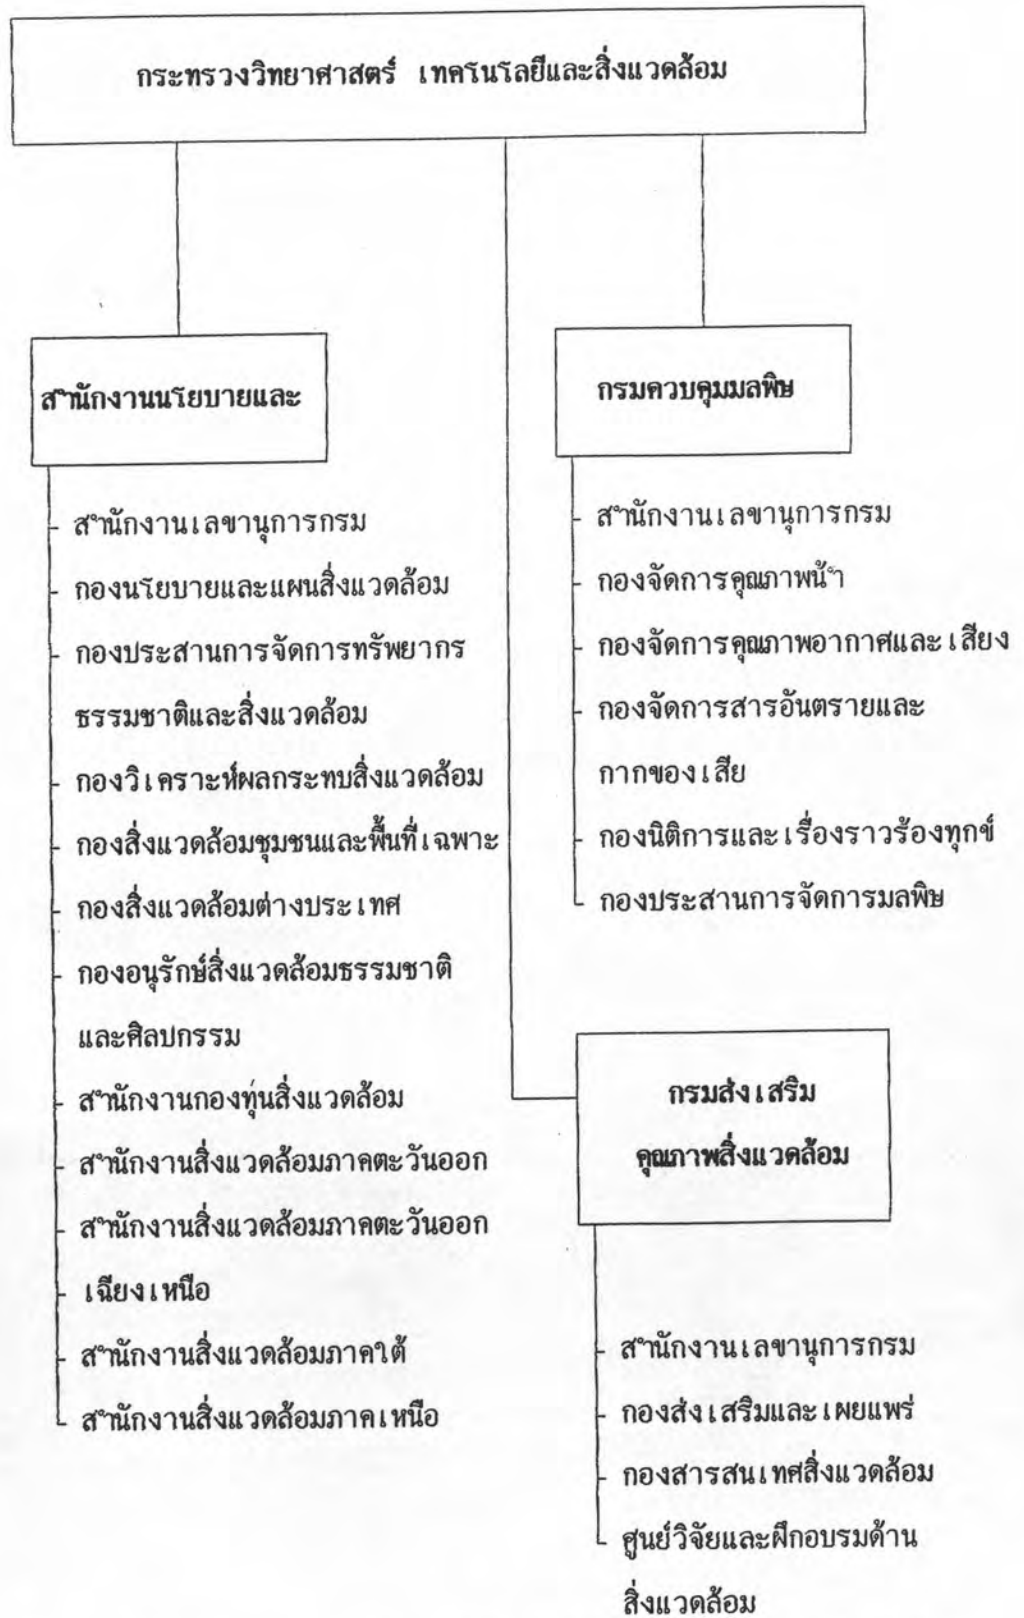 กระทรวงวิทยาศาสตร์ เทคโนโลยีและสิ่งแวดล้อม
สำนักงานนโยบายและ
- สำนักงานเลขานุการกรม
- กองนโยบายและแผนสิ่งแวดล้อม
- กองประสานการจัดการทรัพยากร
ธรรมชาติและสิ่งแวดล้อม
- กองวิเคราะห์ผลกระทบสิ่งแวดล้อม
- กองสิ่งแวดล้อมชุมชนและพื้นที่เฉพาะ
- กองสิ่งแวดล้อมต่างประเทศ
- กองอนุรักษ์สิ่งแวดล้อมธรรมชาติ
และศิลปกรรม
- สำนักงานกองทุ่นสิ่งแวดล้อม
- สำนักงานสิ่งแวดล้อมภาคตะวันออก
- สำนักงานสิ่งแวดล้อมภาคตะวันออก
- เฉียงเหนือ
- สำนักงานสิ่งแวดล้อมภาคใต้
- สำนักงานสิ่งแวดล้อมภาคเหนือ
กรมควบคุมมลพิษ
- สำนักงานเลขานุการกรม
- กองจัดการคุณภาพน้ำ
- กองจัดการคุณภาพอากาศและเสียง
- กองจัดการสารอันตรายและ
กากของเสีย
- กองนิติการและเรื่องราวร้องทุกข์
- กองประสานการจัดการมลพิษ
กรมส่งเสริม
คุณภาพสิ่งแวดล้อม
- สำนักงานเลขานุการกรม
- กองส่งเสริมและเผยแพร่
- กองสารสนเทศสิ่งแวดล้อม
- ศูนย์วิจัยและฝึกอบรมด้าน
สิ่งแวดล้อม